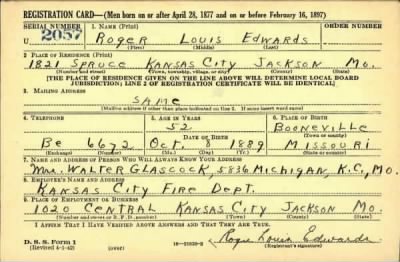 REGISTRATION CARD—(Men born on or after April 28, 1877 and on or before February 16, 1897)
SERIAL NUMBER 1. NAME (Print) ORDER NUMBER
U 2057 ROGER LOUIS EDWARDS
(First) (Middle) (Last)
2. PLACE OF RESIDENCE (Print)
1821 SPRUCE KANSAS CITY JACKSON MO.
(Number and street) (Town, township, village, or city) (County) (State)
[THE PLACE OF RESIDENCE GIVEN ON THE LINE ABOVE WILL DETERMINE LOCAL BOARD
JURISDICTION; LINE 2 OF REGISTRATION CERTIFICATE WILL BE IDENTICAL]
3. MAILING ADDRESS
SAME
[Mailing address if other than place indicated on line 2. If same insert word same]
4. TELEPHONE 5. AGE IN YEARS 6. PLACE OF BIRTH
52 BOONEVILLE
DATE OF BIRTH (Town or county)
BE 6672 OCT. 8 1889 MISSOURI
(Exchange) (Number) (Mo.) (Day) (Yr.) (State or country)
7. NAME AND ADDRESS OF PERSON WHO WILL ALWAYS KNOW YOUR ADDRESS
MRS. WALTER GLASCOCK, 5836 MICHIGAN, K.C., MO.
8. EMPLOYER'S NAME AND ADDRESS
KANSAS CITY FIRE DEPT.
9. PLACE OF EMPLOYMENT OR BUSINESS
1020 CENTRAL KANSAS CITY JACKSON MO.
(Number and street or R. F. D. number) (Town) (County) (State)
I AFFIRM THAT I HAVE VERIFIED ABOVE ANSWERS AND THAT THEY ARE TRUE.
D. S. S. Form 1
(Revised 4-1-42) (over) Roger Louis Edwards
(Registrant's signature)